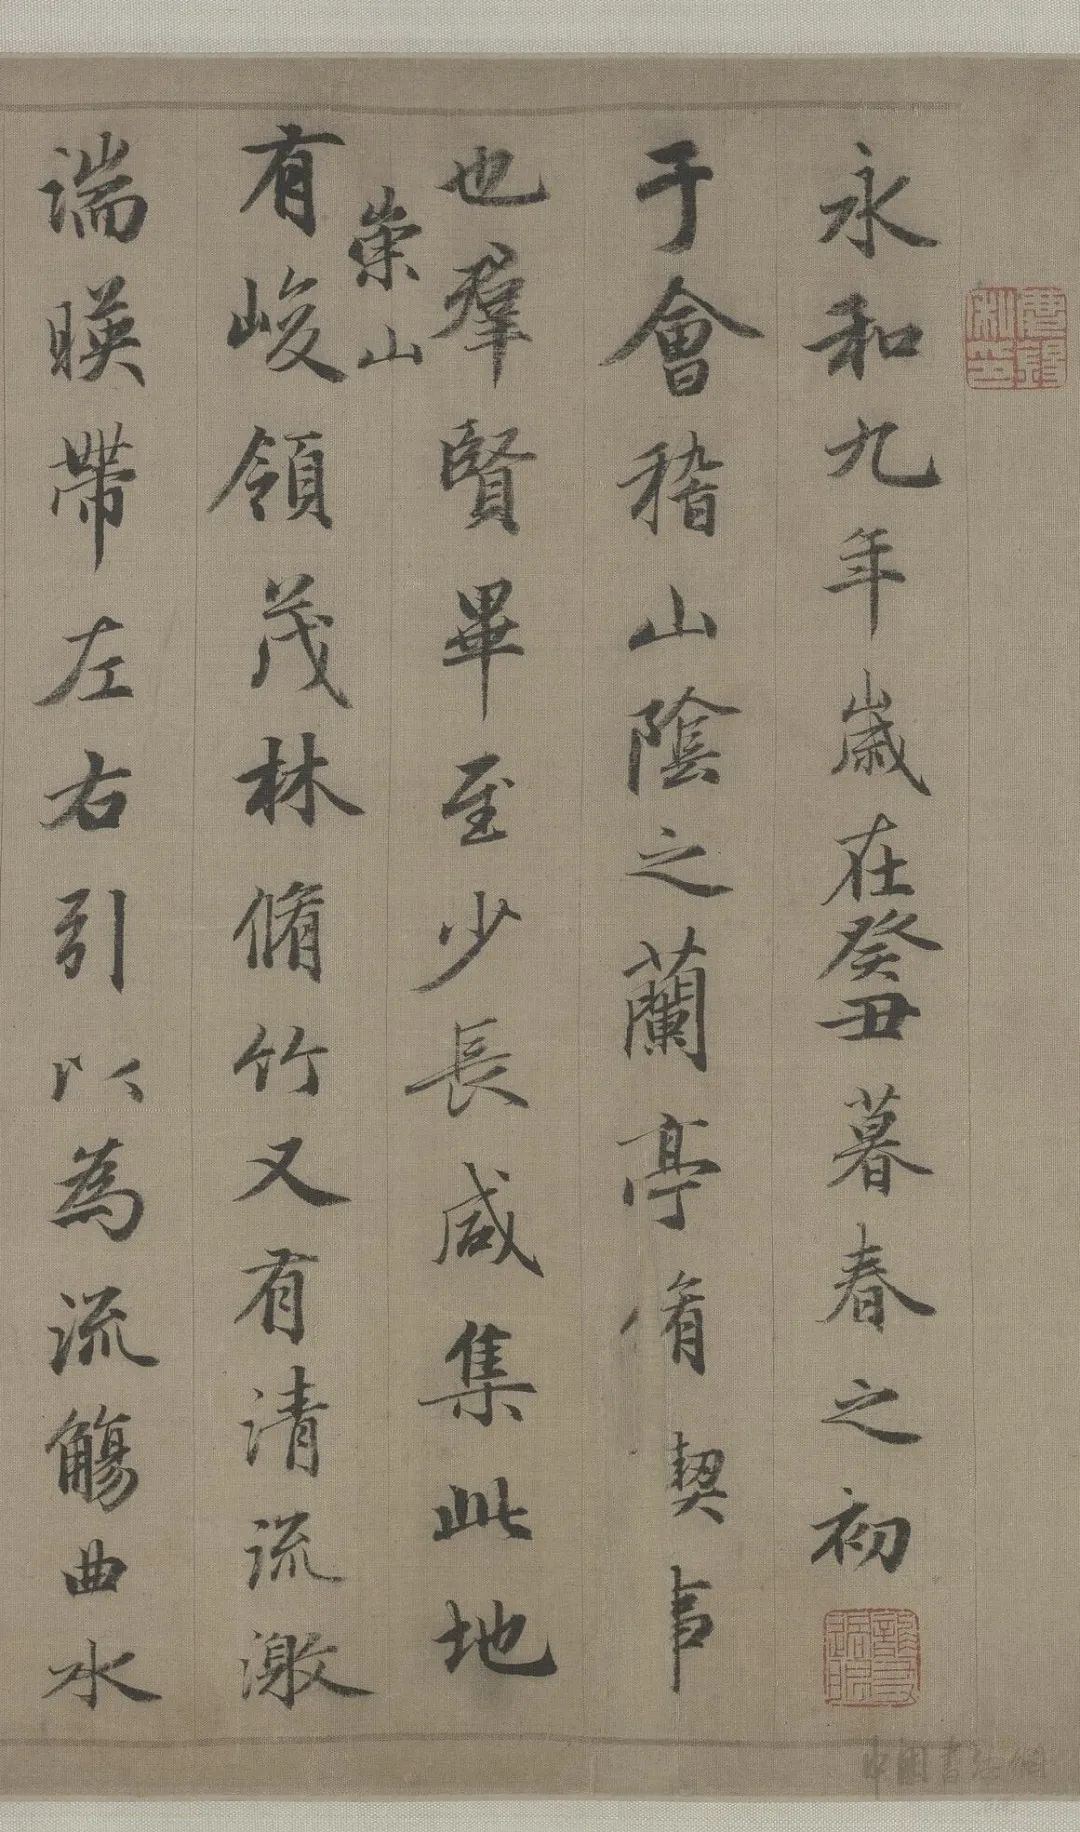 永和九年歲在癸丑暮春之初
于會稽山陰之蘭亭脩契事
也羣賢畢至少長咸集此地
崇山
有峻領茂林脩竹又有清流激
湍暎帶左右引以為流觴曲水
中國書法網